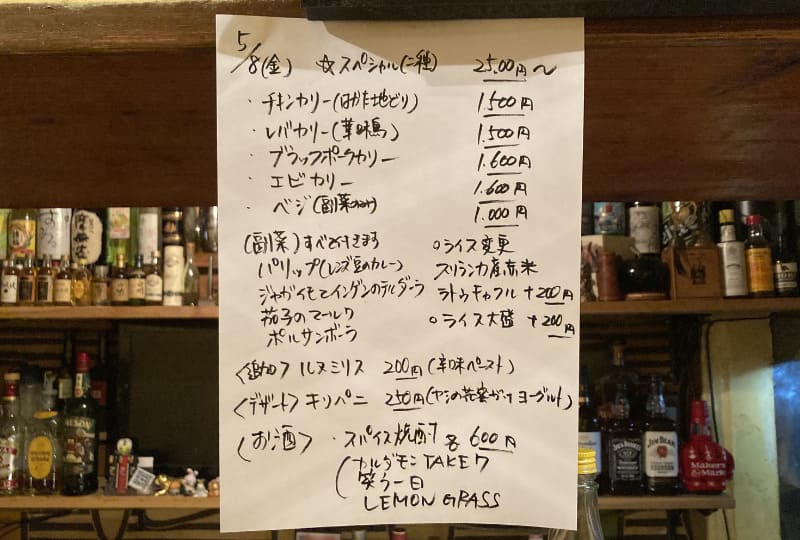 5/8(金) ☆スペシャル(二種) 2500円〜
・チキンカリー(はかた地どり) 1.500円
・レバカリー(華味鳥) 1.500円
・ブラックポークカリー 1.600円
・エビカリー 1.600円
・ベジ(副菜のみ) 1.000円
(副菜)すべて付きます
パリップ(レンズ豆のカレー)
ジャガイモとインゲンのテルダーラ
茄子のモージュ
ポルサンボーラ
○ライス変更
スリランカ産赤米
ラトゥキャクル +200円
○ライス大盛 +200円
<追加> ルヌミリス 200円(辛味ペースト)
<デザート> キリパニ 250円(ヤシの花蜜がけヨーグルト)
(お酒) ・スパイス焼酎 各600円
カルダモンTAKE7
笑う一日
LEMON GRASS
JACK DANIEL'S
JIM BEAM
Maker's Mark